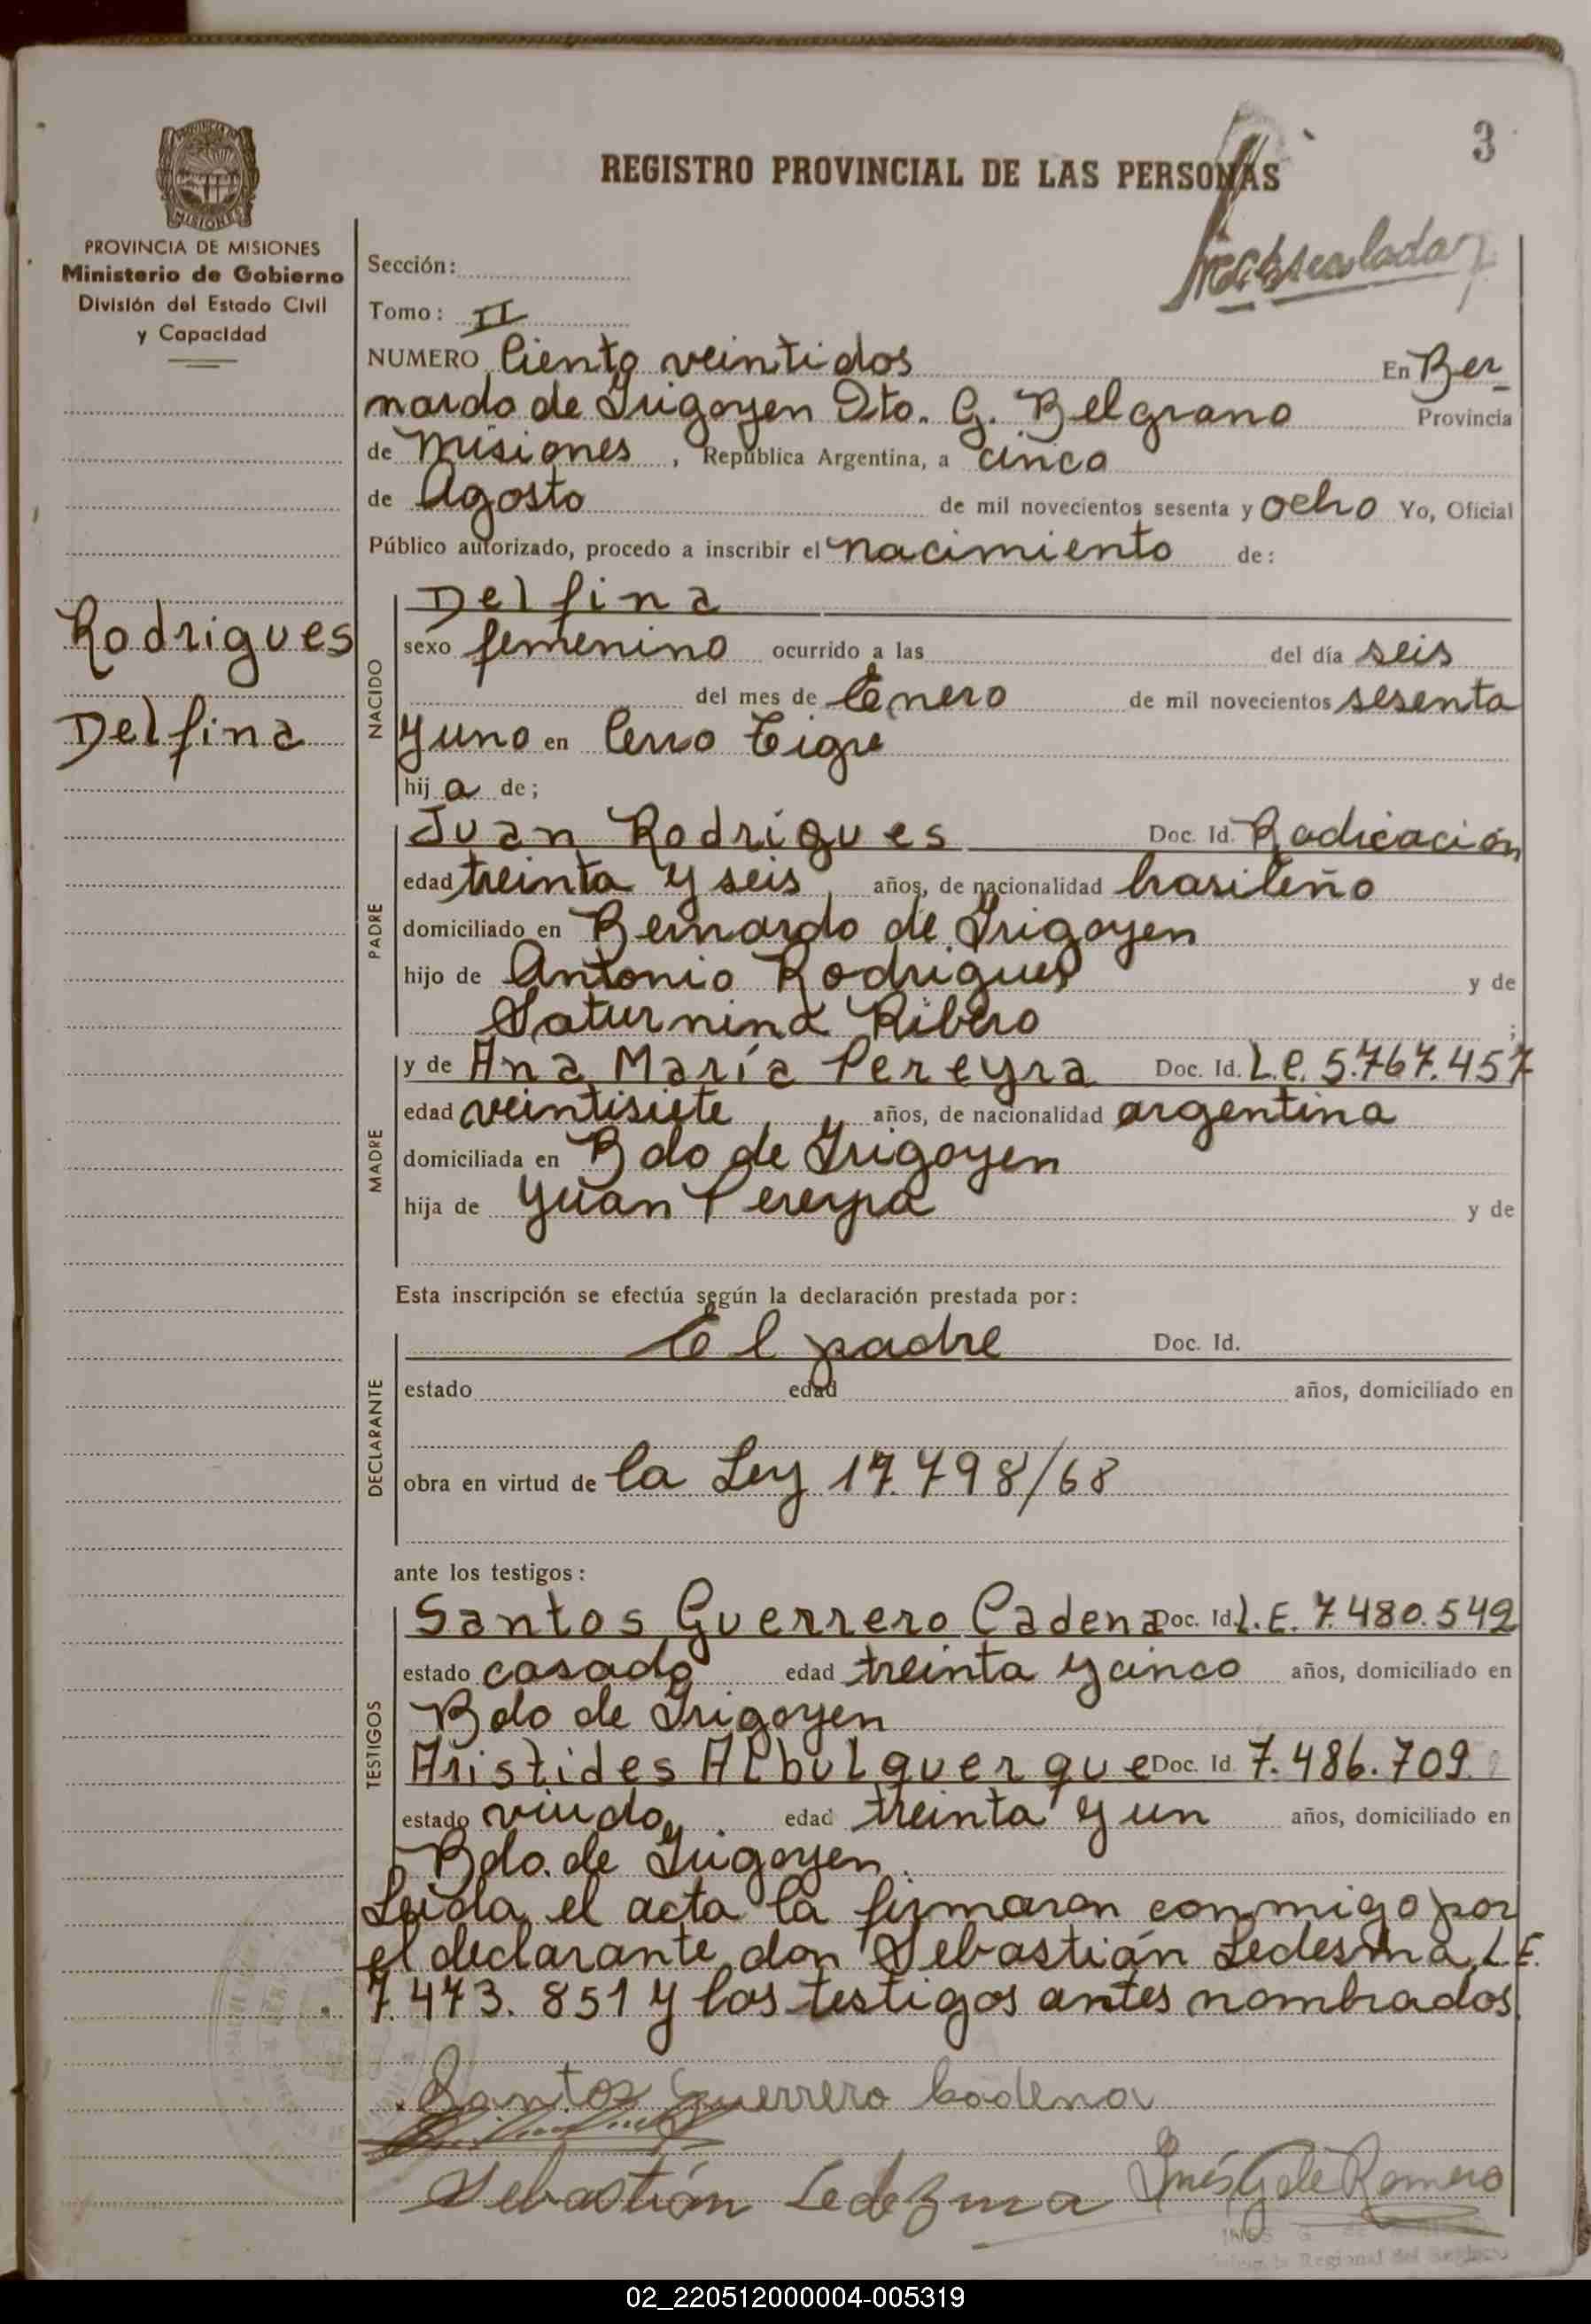 3
REGISTRO PROVINCIAL DE LAS PERSONAS
PROVINCIA DE MISIONES
Ministerio de Gobierno
División del Estado Civil
y Capacidad
Sección:
Tomo: II
NUMERO Ciento veintidos En Ber-
nardo de Irigoyen Dto. G. Belgrano Provincia
de Misiones, República Argentina, a cinco
de Agosto de mil novecientos sesenta y ocho Yo, Oficial
Público autorizado, procedo a inscribir el nacimiento de:
Rodrigues
Delfina
NACIDO
Delfina
sexo femenino ocurrido a las del día seis
del mes de Enero de mil novecientos sesenta
y uno en Cerro Tigre
hija de;
PADRE
Juan Rodrigues Doc. Id. Radicación
edad treinta y seis años, de nacionalidad brasileño
domiciliado en Bernardo de Irigoyen
hijo de Antonio Rodrigues y de
Saturnina Ribero ;
MADRE
y de Ana María Pereyra Doc. Id. L.C. 5.767.457
edad veintisiete años, de nacionalidad argentina
domiciliada en Bdo de Irigoyen
hija de Yuan Pereyra y de
Esta inscripción se efectúa según la declaración prestada por:
DECLARANTE
El padre Doc. Id.
estado edad años, domiciliado en
obra en virtud de la Ley 17.798/68
ante los testigos:
TESTIGOS
Santos Guerrero Cadena Doc. Id. L.E. 7.480.542
estado casado edad treinta y cinco años, domiciliado en
Bdo de Irigoyen
Aristides Albulquerque Doc. Id 7.486.709
estado viudo edad treinta y un años, domiciliado en
Bdo. de Irigoyen.
Leida el acta la firmaron conmigo por
el declarante don Sebastián Ledesma, L.E.
7.473.851 y los testigos antes nombrados.
Santos Guerrero Cadena
Sebastián Ledezma Inés G de Romero
02_220512000004-005319